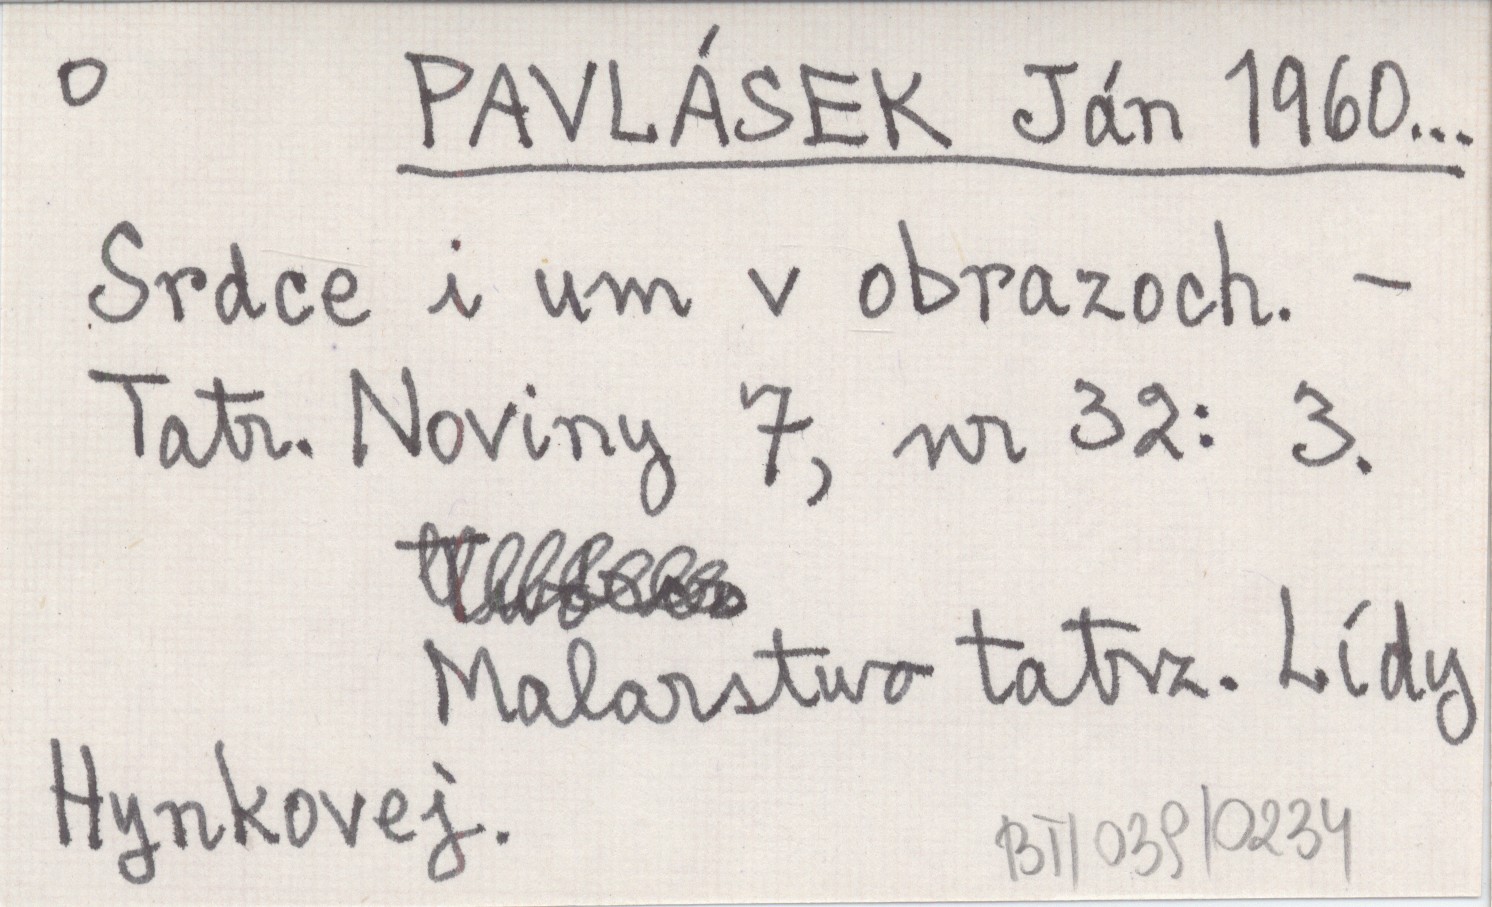 o PAVLÁSEK Ján 1960...
Srdce i um v obrazoch. –
Tatr. Noviny 7, nr 32: 3.
Malarstwo tatrz. Lídy
Hynkovej.
BT/039/0234